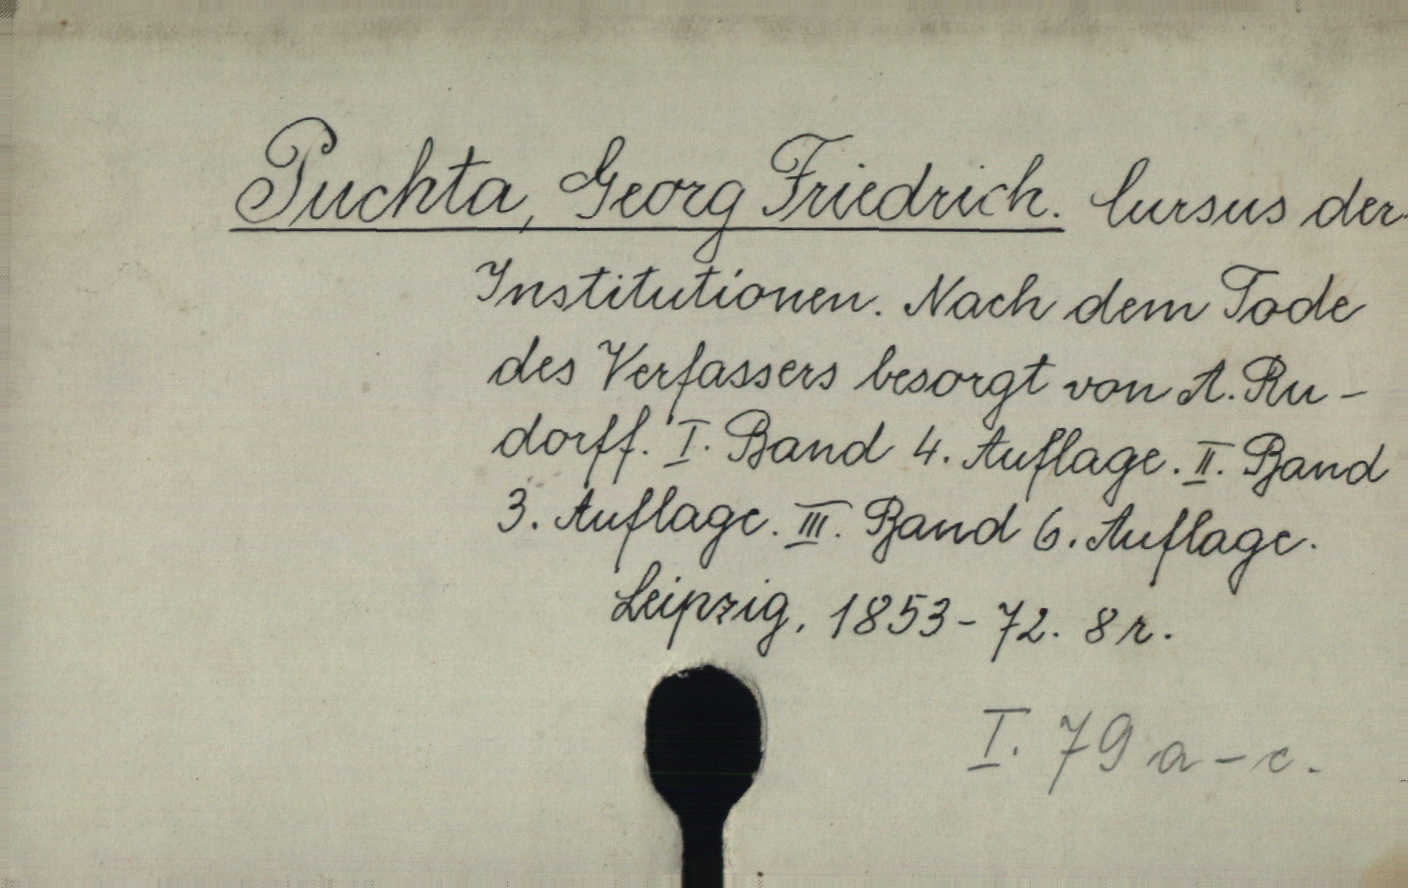 Puchta, Georg Friedrich. Cursus der
Institutionen. Nach dem Tode
des Verfassers besorgt von A. Ru-
dorff. I. Band 4. Auflage. II. Band
3. Auflage. III. Band 6. Auflage.
Leipzig, 1853-72. 8 r.
I. 79 a-c.